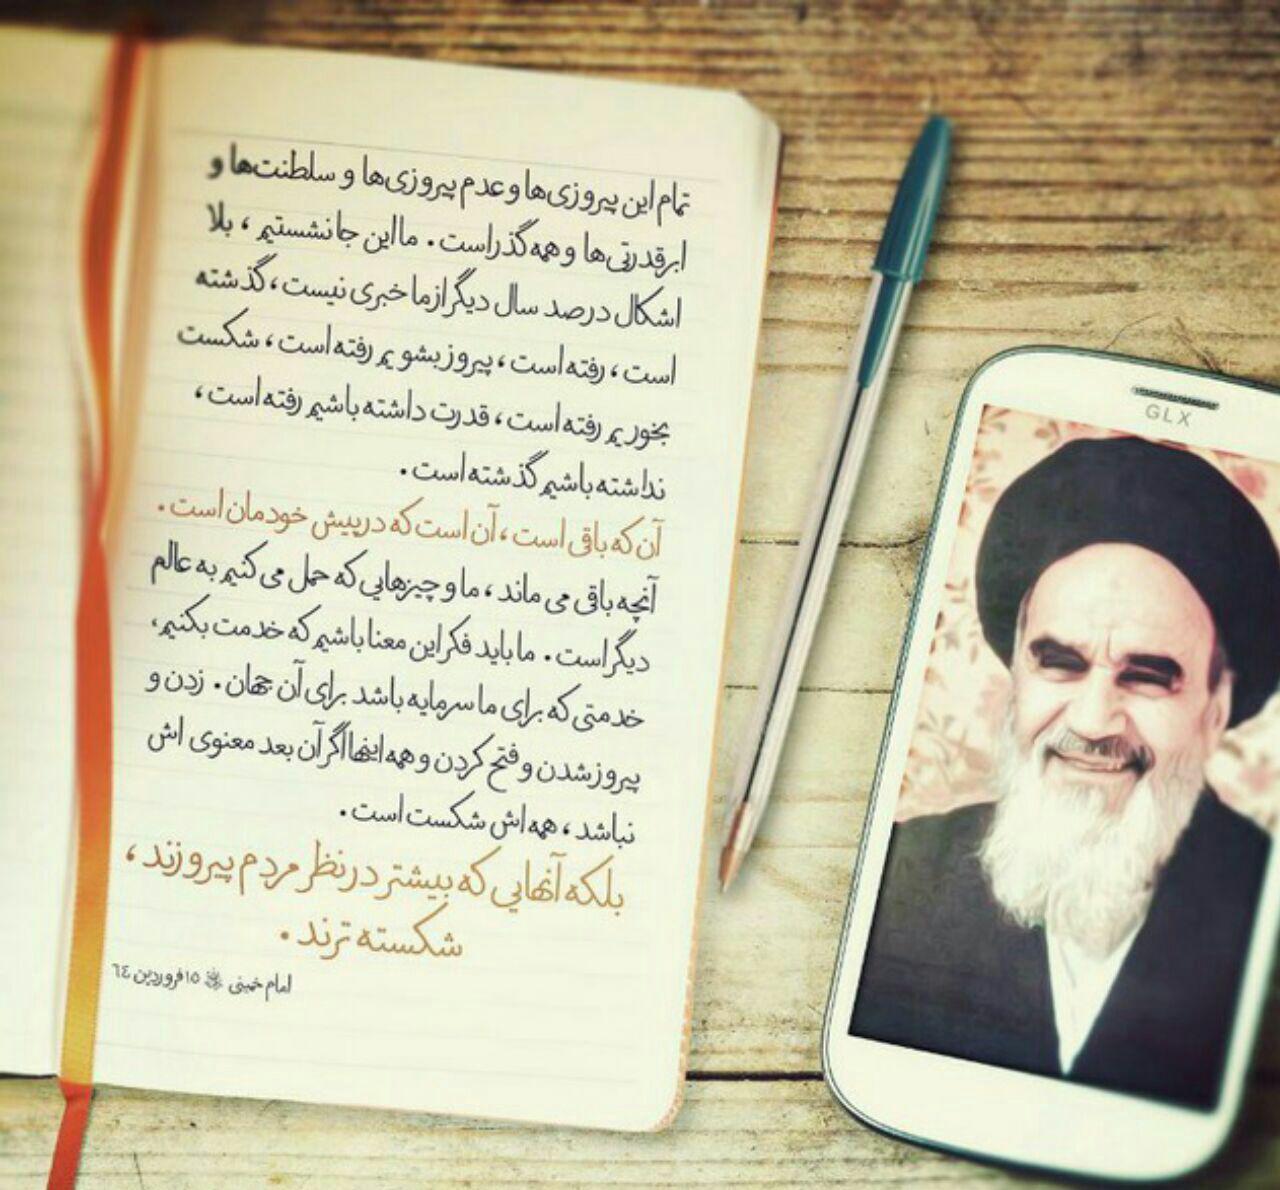 تمام این پیروزی‌ها و عدم پیروزی‌ها و سلطنت‌ها و
ابرقدرتی‌ها و همه گذراست. ما این جا نشستیم ، بلا
اشکال در صد سال دیگر از ما خبری نیست ، گذشته
است ، رفته است ، پیروز بشویم رفته است ، شکست
بخوریم رفته است ، قدرت داشته باشیم رفته است ،
نداشته باشیم گذشته است .
آن که باقی است ، آن است که در پیش خودمان است .
آنچه باقی می ماند ، ما و چیزهایی که حمل می کنیم به عالم
دیگر است . ما باید فکر این معنا باشیم که خدمت بکنیم،
خدمتی که برای ما سرمایه باشد برای آن جهان . زدن و
پیروز شدن و فتح کردن و همه اینها اگر آن بعد معنوی اش
نباشد ، همه اش شکست است .
بلکه آنهایی که بیشتر در نظر مردم پیروزند ،
شکسته ترند .
امام خمینی ۱۵ فروردین ٦٤
GLX